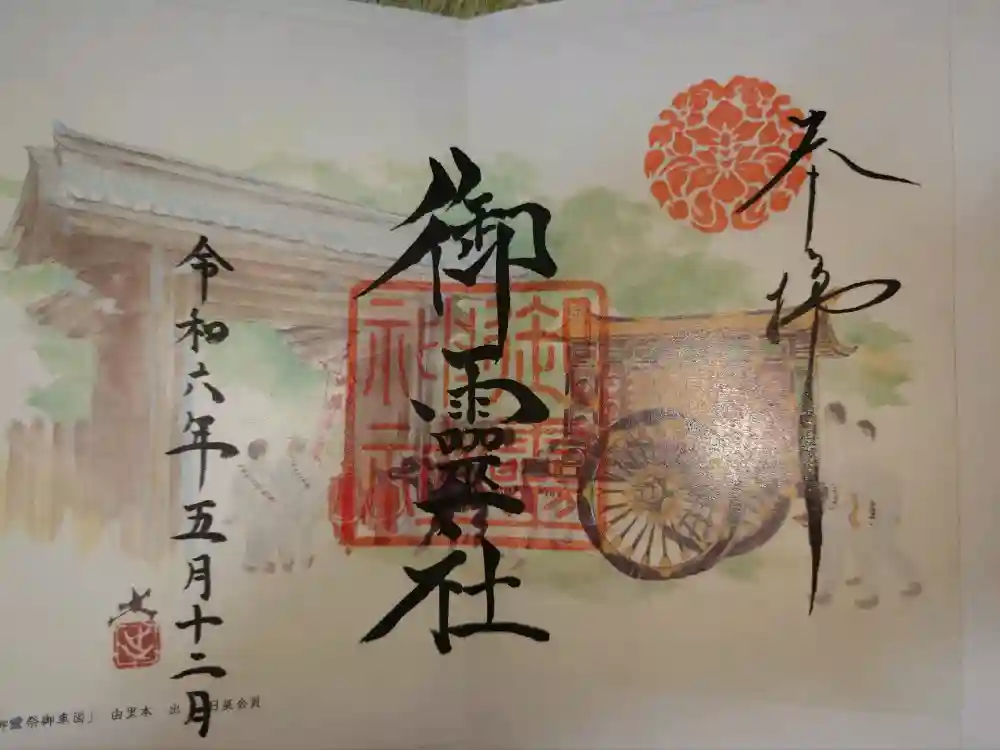 奉拝
御霊神社
令和六年五月十二日
御霊神社
御靈祭御車図」 由里本 出 日展会員